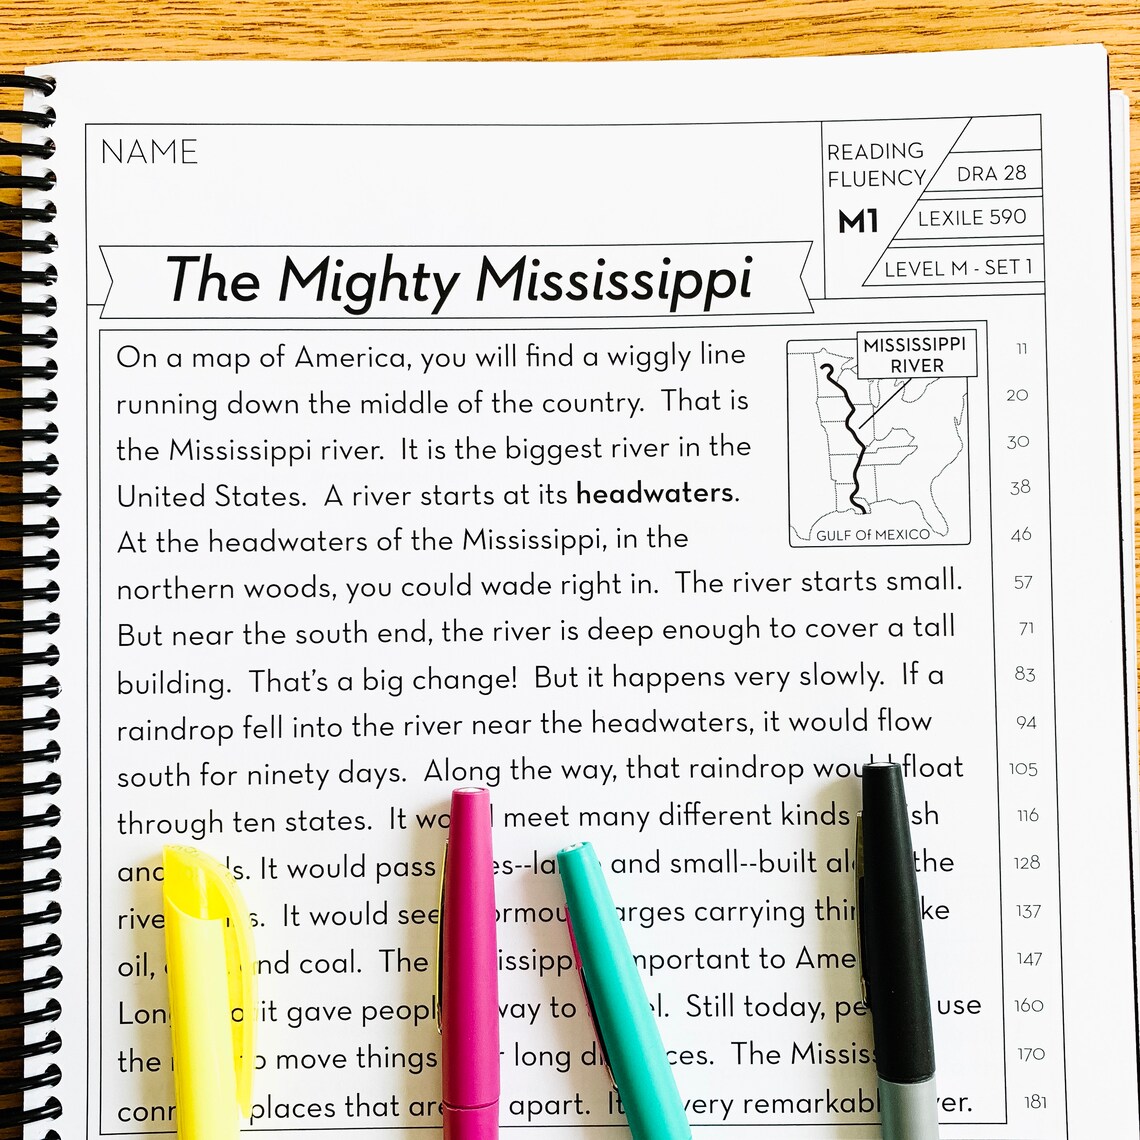 NAME
READING
FLUENCY
M1
DRA 28
LEXILE 590
LEVEL M - SET 1
The Mighty Mississippi
MISSISSIPPI
RIVER
GULF Of MEXICO
On a map of America, you will find a wiggly line 11
running down the middle of the country. That is 20
the Mississippi river. It is the biggest river in the 30
United States. A river starts at its headwaters. 38
At the headwaters of the Mississippi, in the 46
northern woods, you could wade right in. The river starts small. 57
But near the south end, the river is deep enough to cover a tall 71
building. That's a big change! But it happens very slowly. If a 83
raindrop fell into the river near the headwaters, it would flow 94
south for ninety days. Along the way, that raindrop would float 105
through ten states. It would meet many different kinds 116
It would pass and small--built the 128
It would see barges carrying 137
oil, and coal. The important to 147
it gave people way to Still today, use 160
the to move things long The 170
places that are apart. very 181